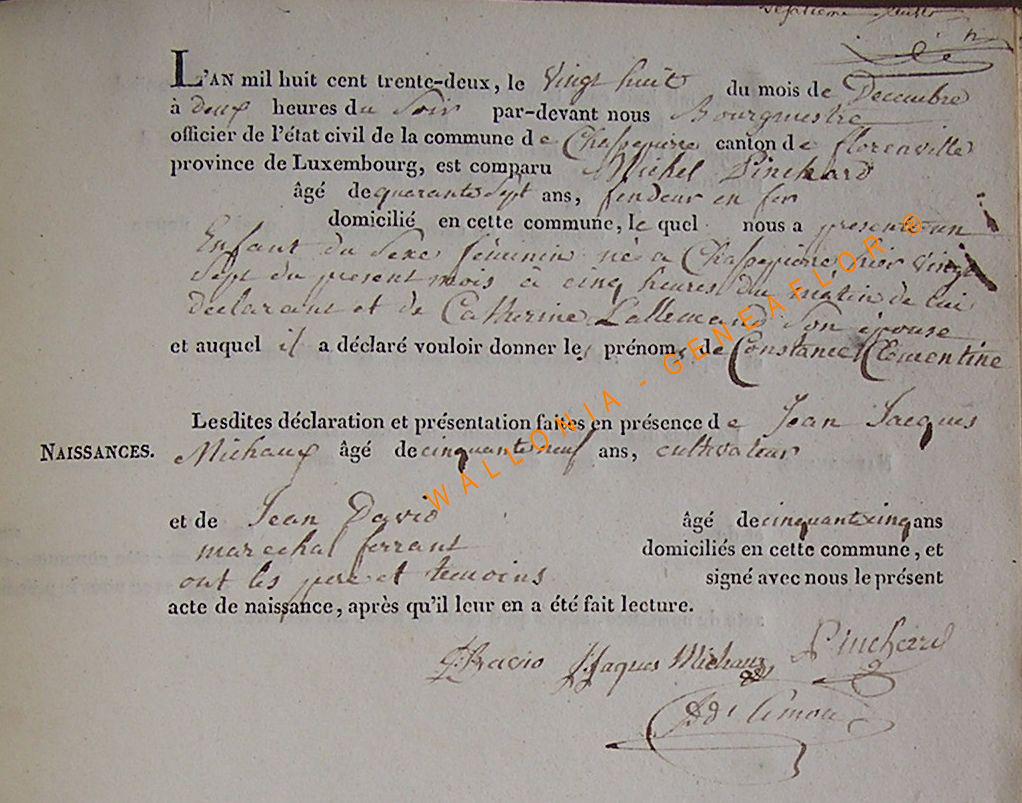 septieme feuillet
L'AN mil huit cent trente-deux, le Vingt huit du mois de Decembre
à deux heures du Soir par-devant nous Bourgmestre
officier de l'état civil de la commune de Chassepierre canton de florenville
province de Luxembourg, est comparu Michel Pinchard
âgé de quarante Sept ans, fendeur en fer
domicilié en cette commune, le quel nous a presenté un
Enfant du Sexe féminin né a Chassepierre hier Vingt
Sept du present mois à cinq heures du matin de lui
declarant et de Catherine Lallemand Son épouse
et auquel il a déclaré vouloir donner les prénoms de Constance Clementine
Lesdites déclaration et présentation faites en présence de Jean Jacques
NAISSANCES. Michaux âgé de cinquante neuf ans, cultivateur
et de Jean David âgé de cinquante cinq ans
marechal ferrant domiciliés en cette commune, et
ont les pere et temoins signé avec nous le présent
acte de naissance, après qu'il leur en a été fait lecture.
J: Jaques Michaux Pincherd
WALLONIA - GENEAFLOR ®